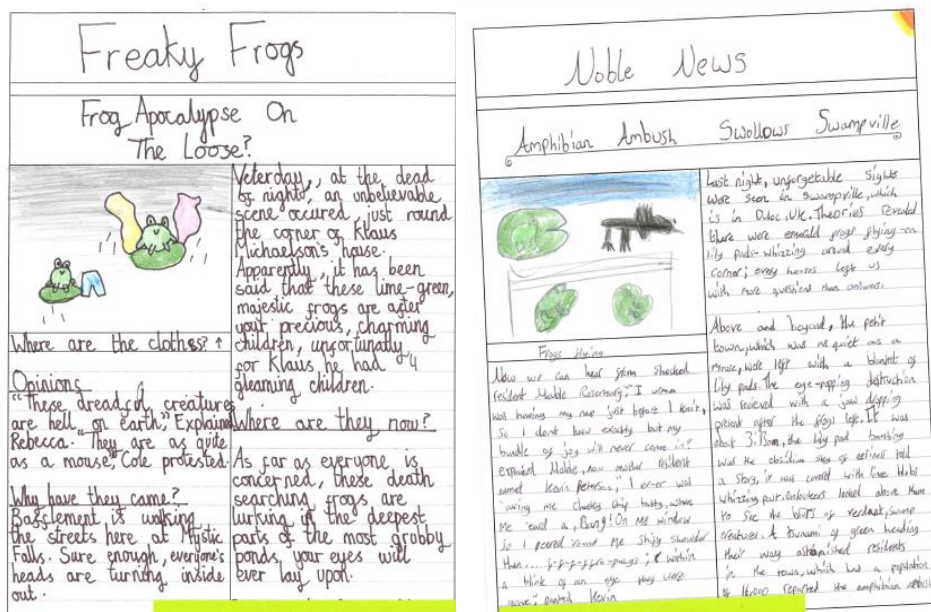 Freaky Frogs
Frog Apocalypse On
The Loose?
Where are the clothes? ↑
Opinions
"These dreadful creatures
are hell on earth," Explained
Rebecca. "They are as quite
as a mouse," Cole protested.
Why have they came?
Bafflement is walking
the streets here at Mystic
Falls. Sure enough, everyone's
heads are turning inside
out.
Yeterday,, at the dead
of night, an unbelievable
scene occured, just round
the corner of Klaus
Michaelson's house.
Apparently, it has been
said that these lime-green,
majestic frogs are after
your precious, charming
children, unfortunatly
for Klaus, he had 4
gleaming children.
Where are they now?
As far as everyone is
concerned, these death
searching frogs are
lurking in the deepest
parts of the most grubby
ponds, your eyes will
ever lay upon.
Noble News
Amphibian Ambush Swollows Swampville
Frogs flying
Now we can hear from shocked
resident Mable
was having my nap just before I
so I dont know exactly but my
bundle of joy will never come in?"
expained Mable, now another resident
named Kevin Peterson," I er-er was
'aving me cheeky chip butty, when
me 'eard a, Bang! On me window
so I peered round me shoulder
then... within
a blink of an eye they were
'gone", panted Kevin
Last night, unforgetable sights
were seen in Swampville, which
is in UK. Theories revealed
there were emerald frogs flying-on
lily pads-whizzing around every
corner; every left us
with more questions than answers.
Above and beyond, the petit
town, which was as quiet as a
mouse, were left with a blanket of
lily pads. The eye-popping destruction
was recieved with a jaw dropping
present after the frogs left. It was
about the lily pad bombing
was the obsidian sky of had
a story, it was coverd with lime blobs
whizzing past. Onlookers looked above them
to see the blurs of verdant, swamp
creatures. A tsunami of green heading
their way astonished residents
in the town, which has a population
of 16000 reported the amphibian ambush